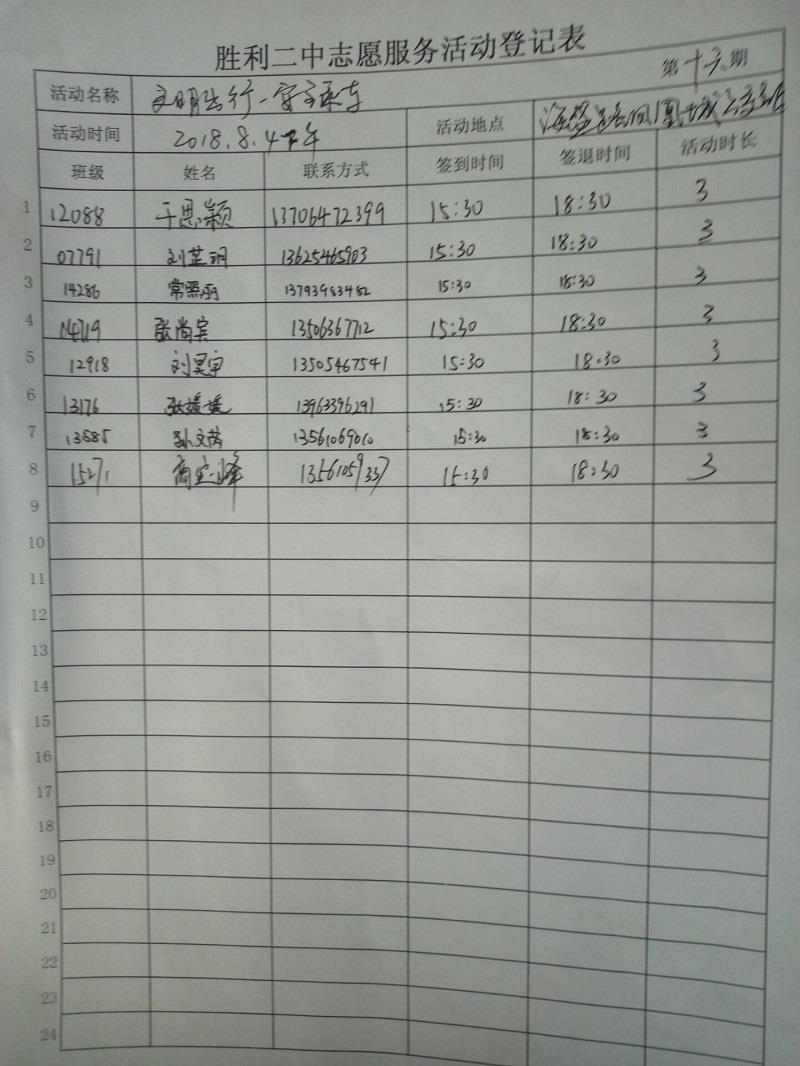 胜利二中志愿服务活动登记表
第十六期
活动名称 文明出行-安全乘车
活动时间 2018.8.4下午 活动地点 海盈路凤凰城公交站
班级 姓名 联系方式 签到时间 签退时间 活动时长
1 12088 于思颖 13706472399 15:30 18:30 3
2 07791 刘芷玥 13625465903 15:30 18:30 3
3 14286 常照雨 13793983482 15:30 18:30 3
4 14719 张尚宾 13506367712 15:30 18:30 3
5 12918 刘昊宇 13505467541 15:30 18:30 3
6 13176 张媛媛 13963396291 15:30 18:30 3
7 13585 孙文芮 13561069010 15:30 18:30 3
8 15271 13561059337 15:30 18:30 3
9
10
11
12
13
14
15
16
17
18
19
20
21
22
23
24